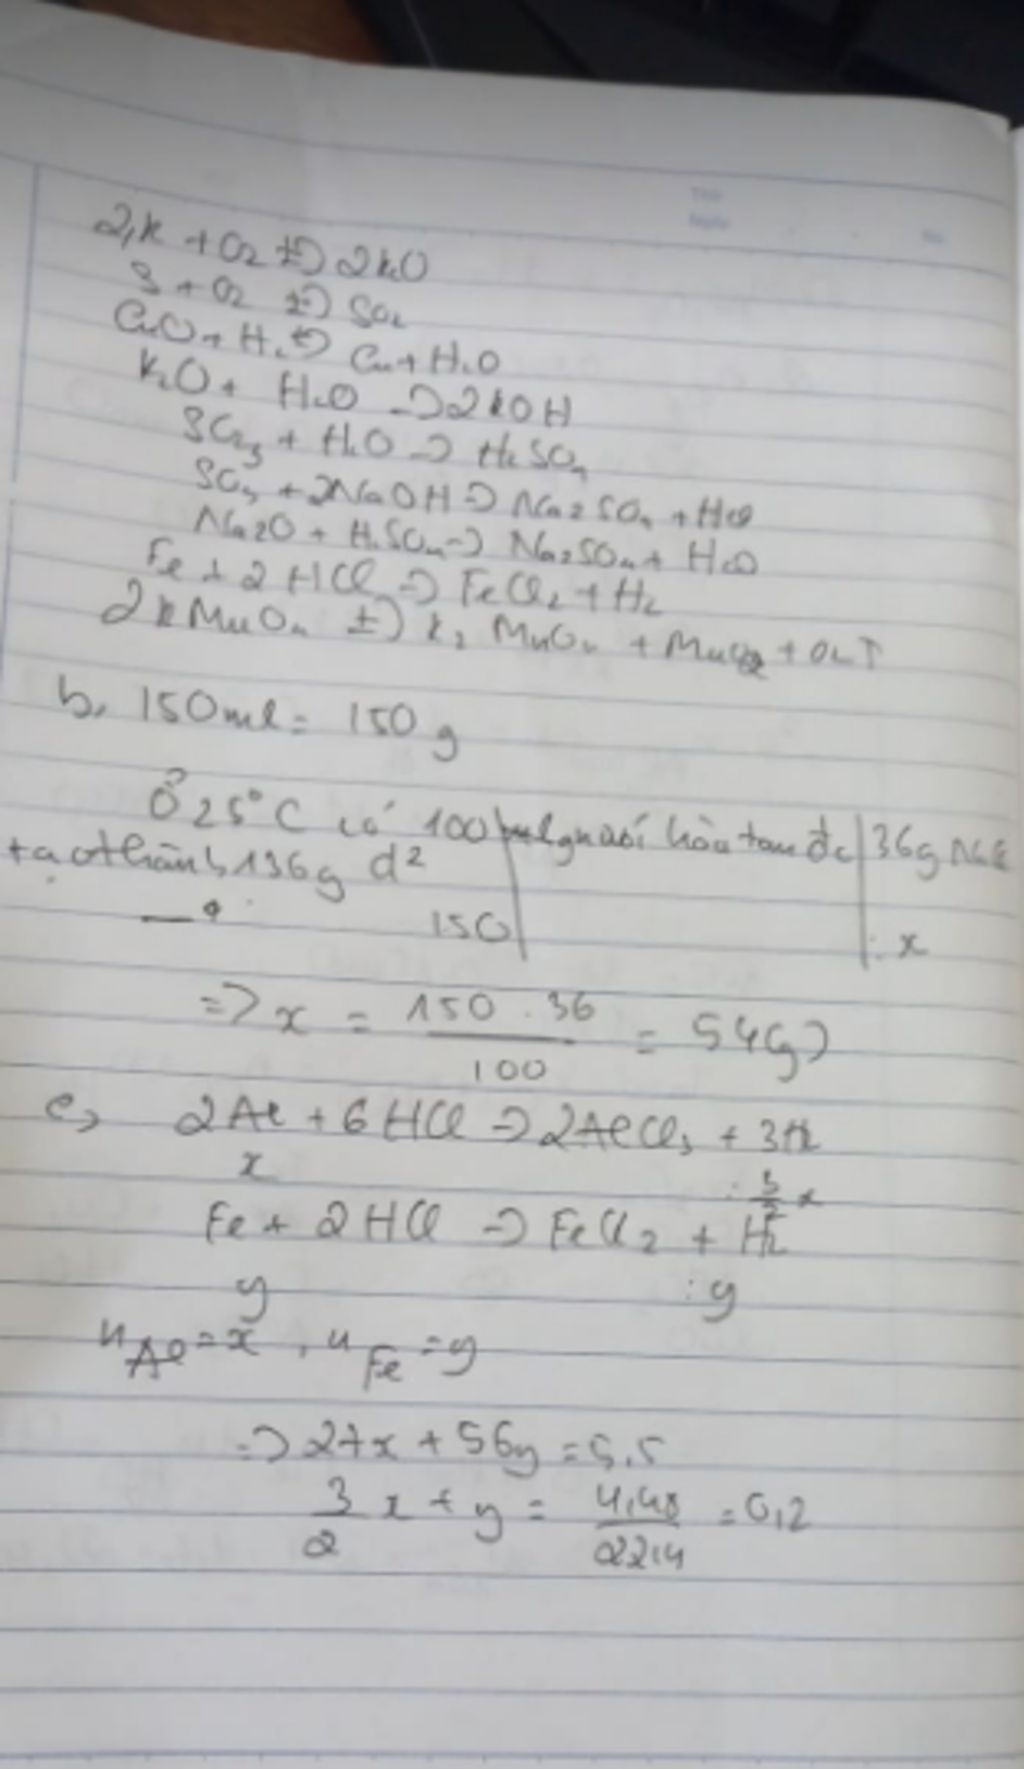 2K + O2 t°→ 2KO
S + O2 t°→ SO2
CuO + H2 t°→ Cu + H2O
K2O + H2O → 2KOH
SO3 + H2O → H2SO4
SO3 + 2NaOH → Na2SO4 + H2O
Na2O + H2SO4 → Na2SO4 + H2O
Fe + 2HCl → FeCl2 + H2
2KMnO4 t°→ K2MnO4 + MnO2 + O2↑
b, 150ml = 150g
Ở 25°C có 100 hòa tan đc 36g NaCl
tạo thành 136g d²
150 x
=> x = 150 . 36 / 100 = 54(g)
c, 2Al + 6HCl → 2AlCl3 + 3H2
x 3/2 x
Fe + 2HCl → FeCl2 + H2
y : y
nAl = x , nFe = y
=> 27x + 56y = 5,5
3/2 x + y = 4,48 / 22,4 = 0,2